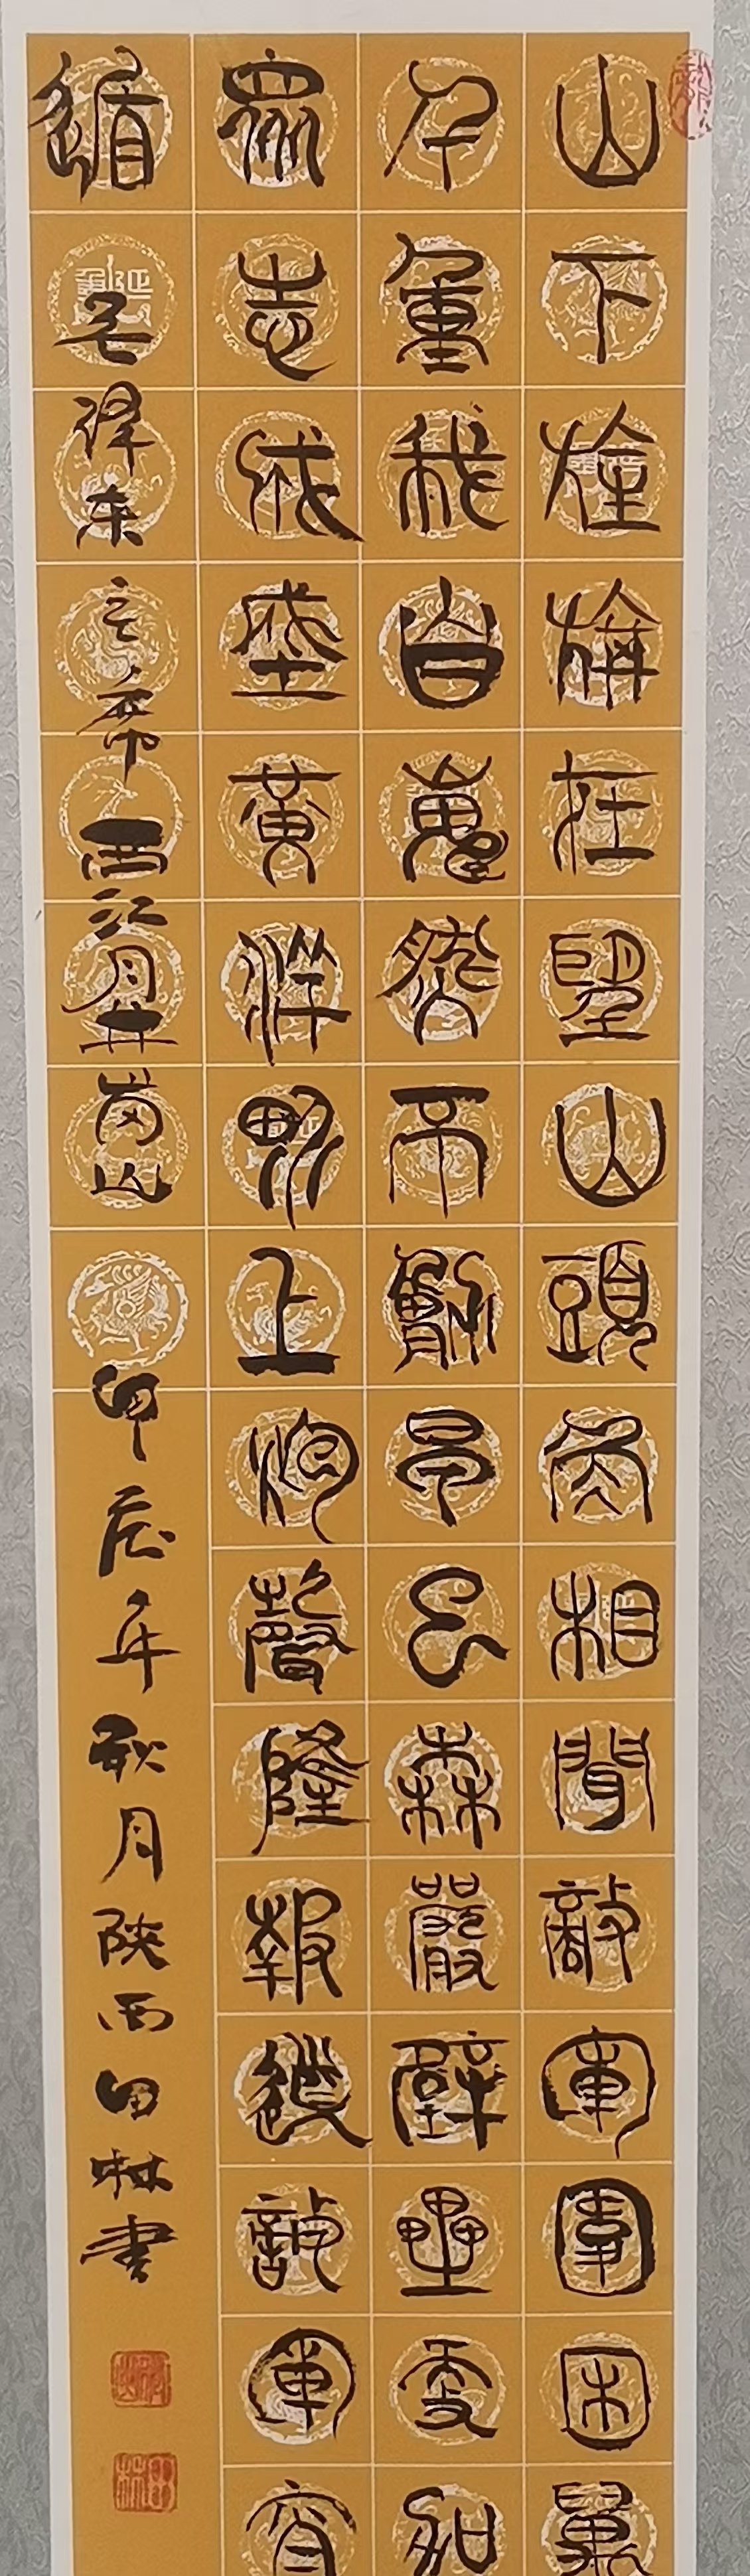 山下旌旗在望山頭角相聞敵軍圍困萬
千重我自巋然不動早已森嚴壁壘更加
眾志成城黃洋界上炮聲隆報道敵軍宵
遁 毛泽东主席西江月井岡山 甲辰年秋月陕西田林書